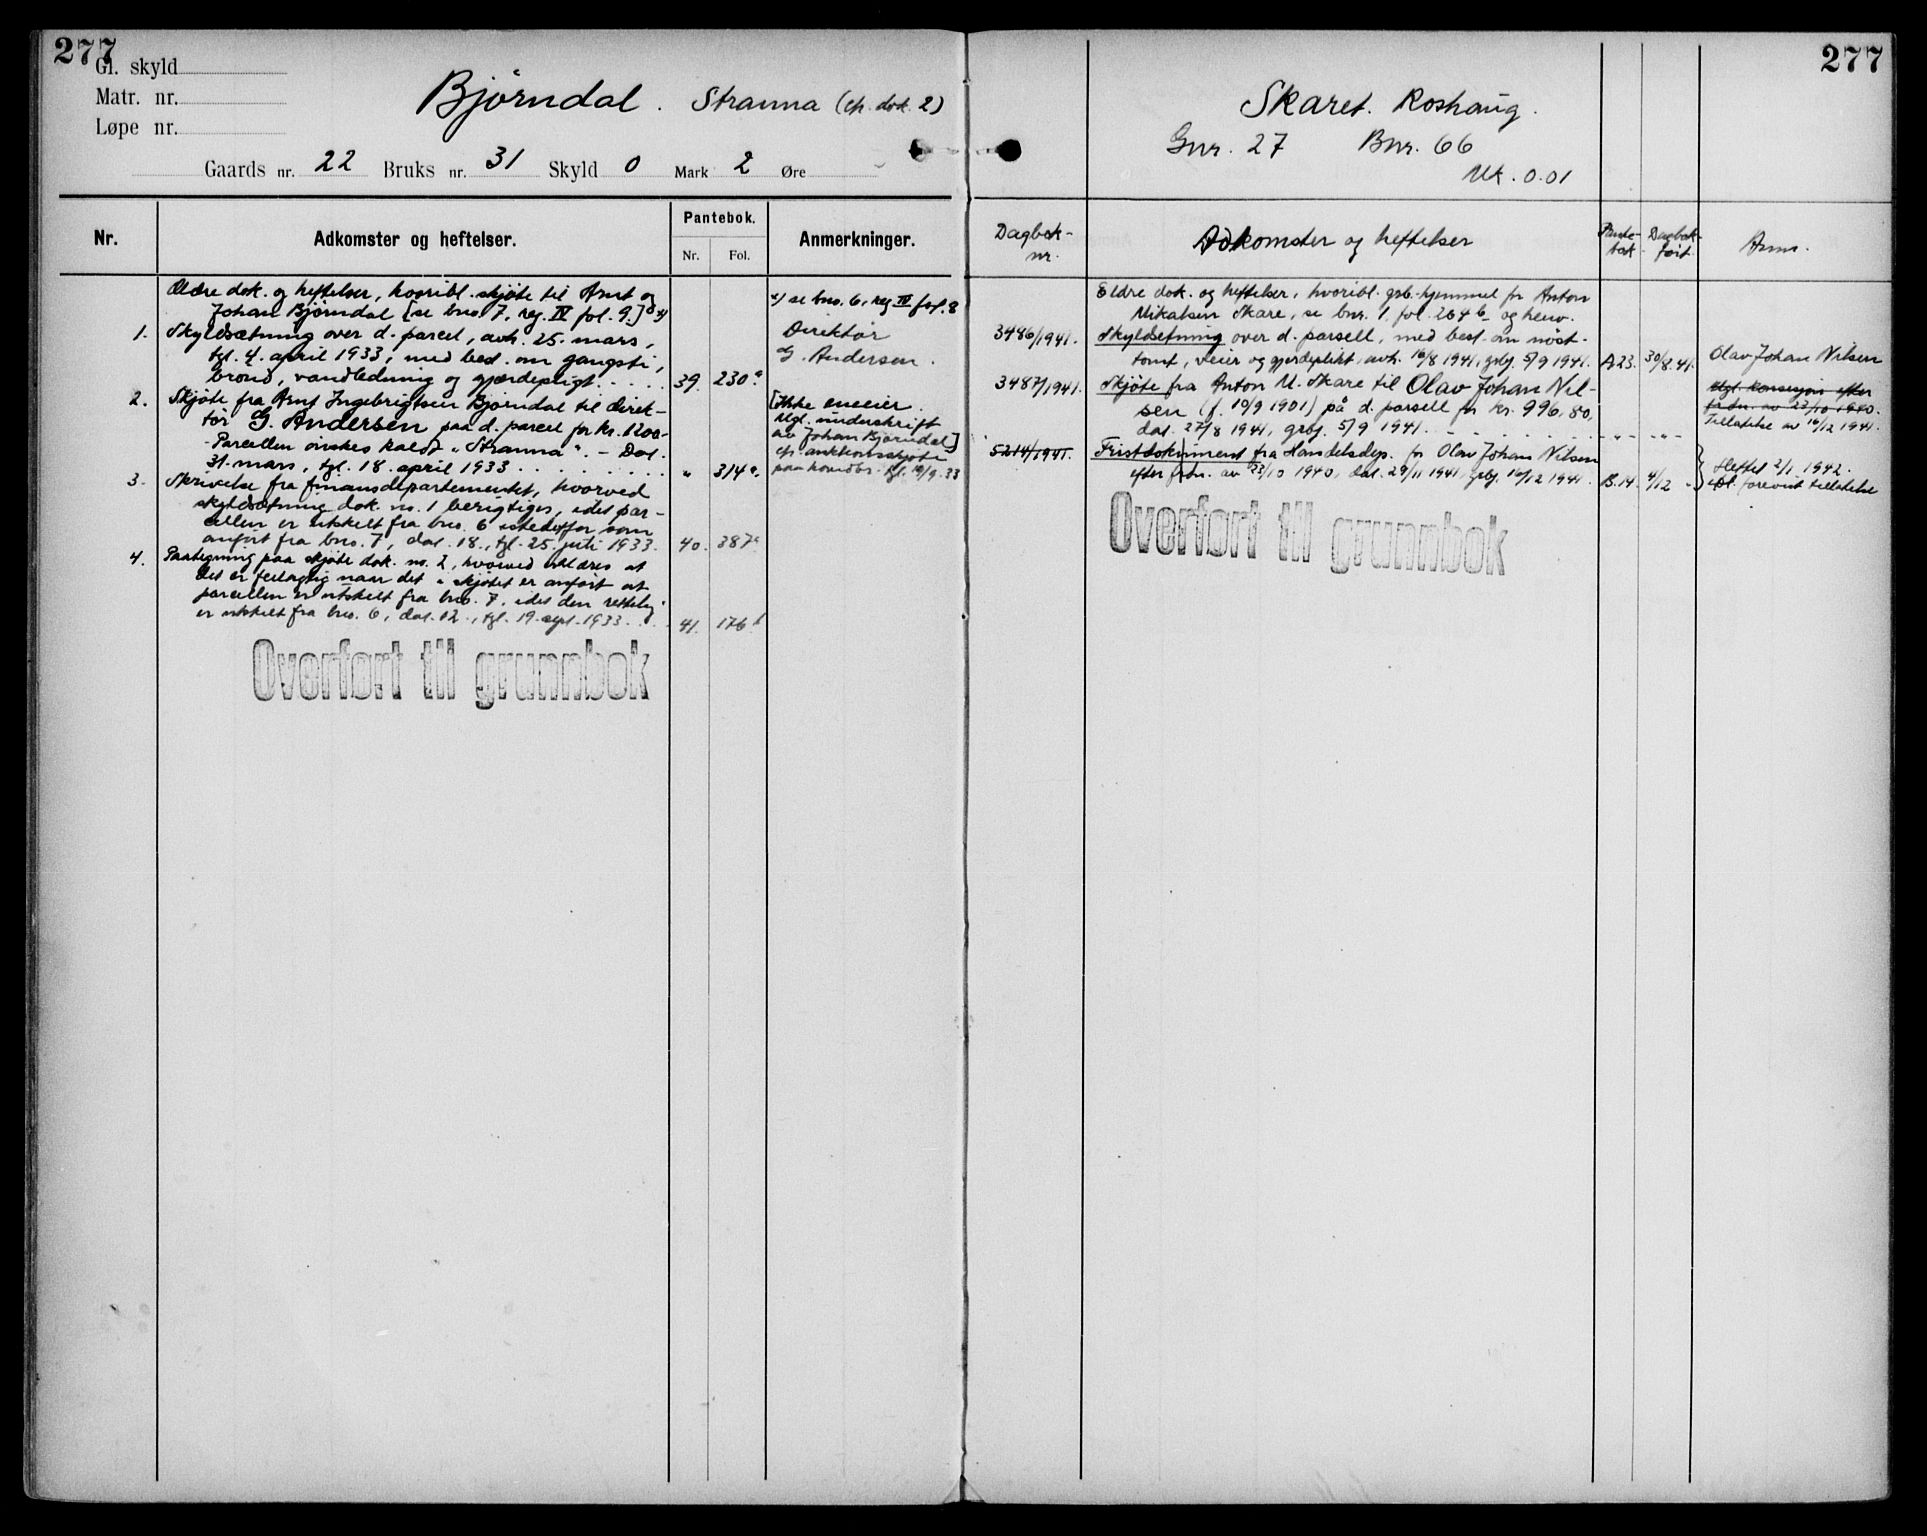 277
Gl. skyld
Matr. nr.
Løpe nr.
Bjørndal. Stranna (cfr. dok. 2)
Gaards nr. 22 Bruks nr. 31 Skyld 0 Mark 2 Øre
Nr. Adkomster og heftelser. Pantebok. Anmerkninger.
Nr. Fol.
Ældre dok. og heftelser, hvoribl. skjøte til Arnt og
Johan Bjørndal [se bno. 7, reg. IV fol. 9.] x)
x) se bno. 6, reg IV fol. 8
1. Skyldsætning over d. parcel, avh. 25. mars,
tgl. 4. april 1933, med best. om gangsti,
brønd, vandledning og gjærdepligt..... 39. 230a
Direktør
G. Andersen.
2. Skjøte fra Arnt Ingebrigtsen Bjørndal til direk-
tør G. Andersen paa d. parcel for kr. 1200-
-Parcellen ønskes kaldt „Stranna“. - Dat.
31. mars, tgl. 18. april 1933. . . . . . . . . " 314a.
[Ikke eneeier.
Mgl. underskrift
av Johan Bjørndal]
cfr. auktionsskjøte
tgl. 19/9.33
3. Skrivelse fra finansdepartementet, hvorved
skyldsætning dok. no. 1 berigtiges, idet par-
cellen er utskilt fra bno. 6 istedetfor som
anført fra bno. 7, dat. 18., tgl. 25. juli 1933. 40. 387a
4. Paategning paa skjøte dok. no. 2, hvorved uttales at
det er feilagtig naar det i skjøtet er anført at
parcellen er utskilt fra bno. 7, idet den rettelig
er utskilt fra bno. 6, dat. 12., tgl. 19. sept. 1933.... 41. 176b
Overført til grunnbok
277
Skaret. Roshaug.
Gnr. 27 Bnr. 66
Mk. 0.01
Dagbok-
nr.
Adkomster og heftelser
Pante-
bok
Dagbok-
ført
Anm.
Eldre dok. og heftelser, hvoribl. grb.-hjemmel for Anton
Mikalsen Skare, se bnr. 1 fol. 264 b og henv.
3486/1941. Skyldsetning over d. parsell, med best. om nøst-
tomt, veier og gjerdeplikt, avh. 16/8 1941, grbf. 5/9 1941. A.23. 30/8.41.
Olav Johan Nilsen
3487/1941. Skjøte fra Anton M. Skare til Olav Johan Nil-
sen (f. 10/9 1901) på d. parsell for kr. 996,80,
dat. 27/8 1941, grbf. 5/9 1941. - - - - - - -
Mgl. konsesjon efter
frdn. av 23/10 1940.
Tillatelse av 16/12 1941.
5214/1941. Fristdokument fra Handelsdep. for Olav Johan Nilsen
efter frdn. av 23/10 1940, dat. 29/11 1941, grbf. 16/12 1941. B.14. 4/12 -
Slettet 2/1 1942.
forevist tillatelse
Overført til grunnbok